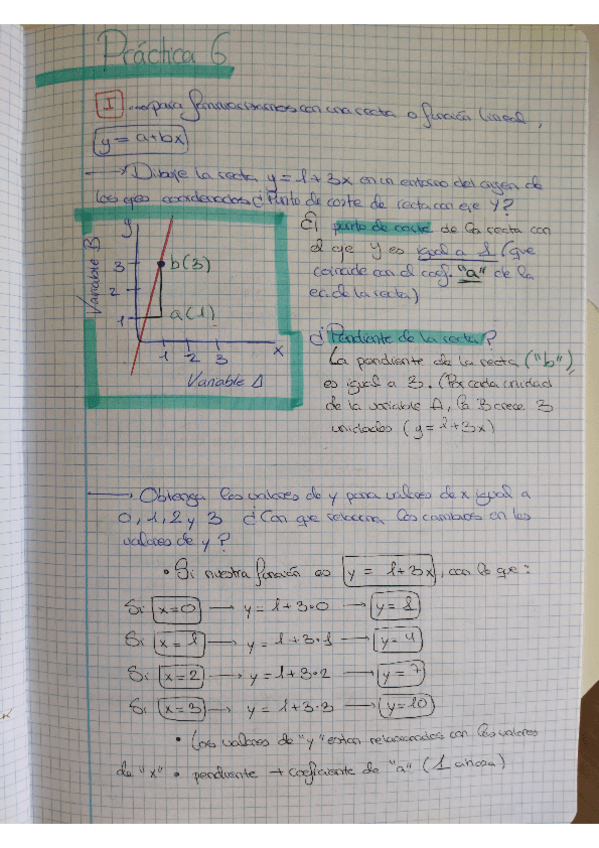 Práctica 6
I para familiarizarnos con una recta o función lineal,
y = a+bx
Dibuje la recta y = 1+3x en un entorno del origen de
los ejes coordenados ¿Punto de corte de recta con eje Y?
El punto de corte de la recta con
el eje Y es igual a 1 (que
coincide con el coef. "a" de la
ec. de la recta)
y
Variable B
3
2
1
b(3)
a(1)
1 2 3 x
Variable A
¿Pendiente de la recta?
La pendiente de la recta ("b"),
es igual a 3. (Por cada unidad
de la variable A, la B crece 3
unidades (y = 1+3x)
Obtenga los valores de y para valores de x igual a
0, 1, 2 y 3 ¿Con que relaciona los cambios en los
valores de y?
• Si nuestra función es y = 1+3x, con lo que:
Si x=0 → y = 1+3·0 → y = 1
Si x = 1 → y = 1+3·1 → y = 4
Si x = 2 → y = 1+3·2 → y = 7
Si x = 3 → y = 1+3·3 → y = 10
• Los valores de "y" estan relacionados con los valores
de "x" • pendiente + coeficiente de "a" (1 ahora)